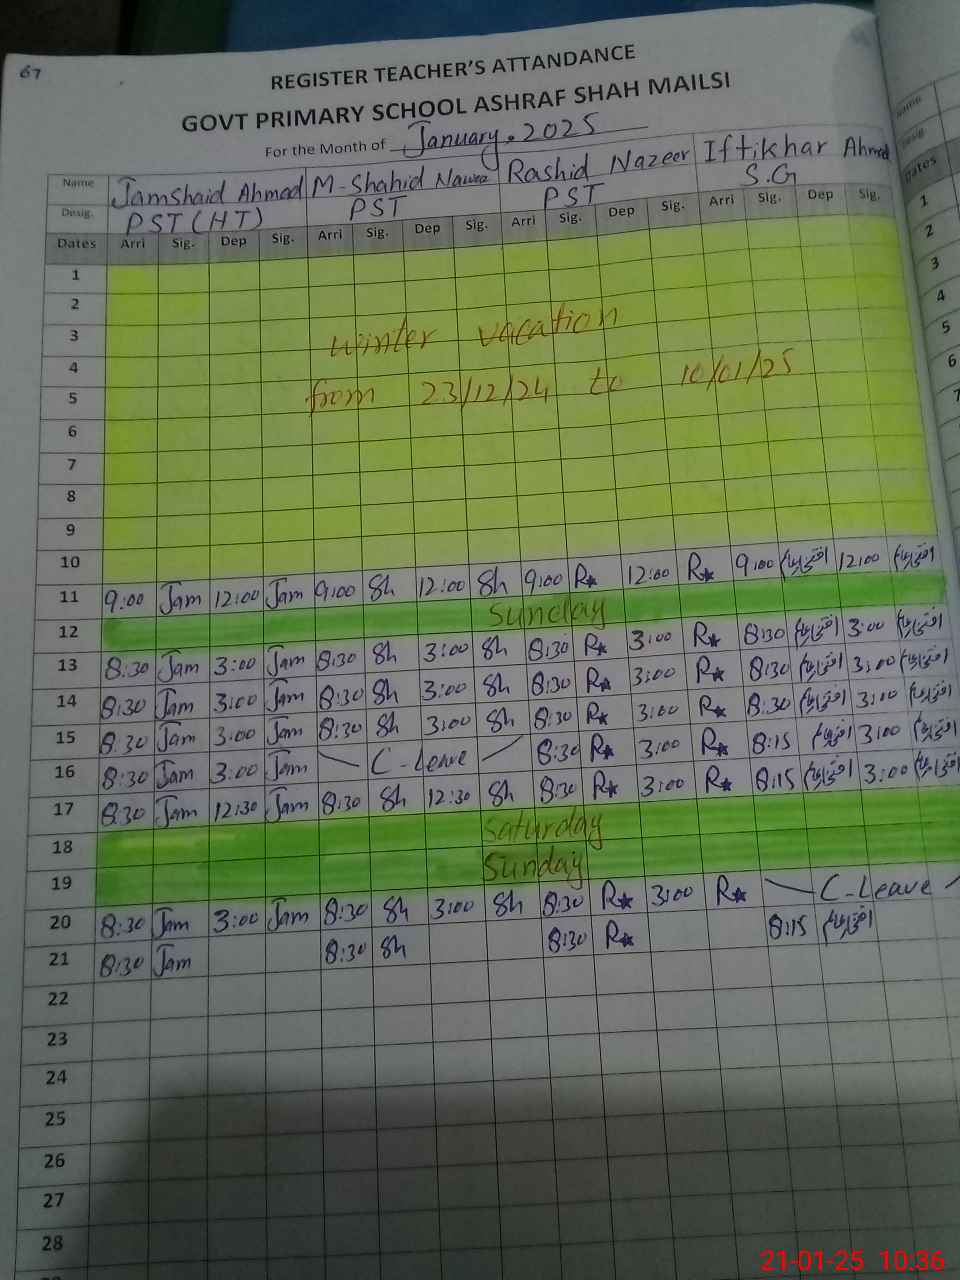 67
REGISTER TEACHER'S ATTANDANCE
GOVT PRIMARY SCHOOL ASHRAF SHAH MAILSI
For the Month of January. 2025
Name Jamshaid Ahmad M-Shahid Nawaz Rashid Nazeer Iftikhar Ahmad
Desig. PST (HT) PST PST S.G
Dates Arri Sig. Dep Sig. Arri Sig. Dep Sig. Arri Sig. Dep Sig. Arri Sig. Dep Sig.
1
2
3 winter vacation
4
5 from 23/12/24 to 10/01/25
6
7
8
9
10
11 9:00 Jam 12:00 Jam 9:00 Sh 12:00 Sh 9:00 R 12:00 R 9:00 12:00
12 Sunday
13 8:30 Jam 3:00 Jam 8:30 Sh 3:00 Sh 8:30 R 3:00 R 8:30 3:00
14 8:30 Jam 3:00 Jam 8:30 Sh 3:00 Sh 8:30 R 3:00 R 8:30 3:00
15 8:30 Jam 3:00 Jam 8:30 Sh 3:00 Sh 8:30 R 3:00 R 8:30 3:00
16 8:30 Jam 3:00 Jam C-Leave 8:30 R 3:00 R 8:15 3:00
17 8:30 Jam 12:30 Jam 8:30 Sh 12:30 Sh 8:30 R 3:00 R 8:15 3:00
18 Saturday
19 Sunday
20 8:30 Jam 3:00 Jam 8:30 Sh 3:00 Sh 8:30 R 3:00 R C-Leave
21 8:30 Jam 8:30 Sh 8:30 R 8:15
22
23
24
25
26
27
28
Name
Desig.
Dates
1
2
3
4
5
6
7
21-01-25 10:36